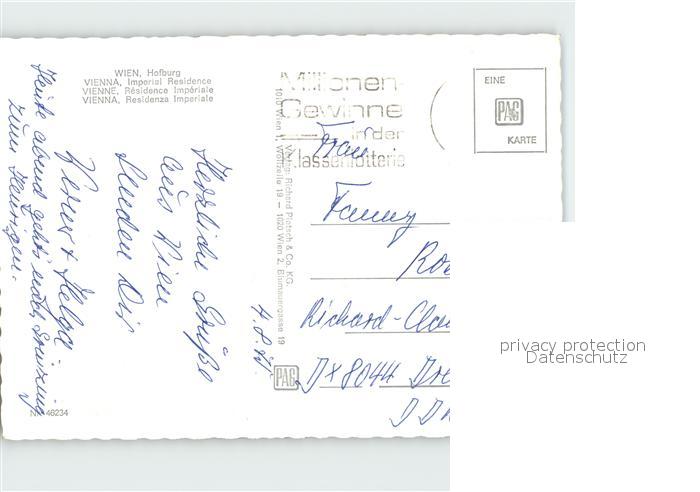 WIEN, Hofburg
VIENNA, Imperial Residence
VIENNE, Résidence Impériale
VIENNA, Residenza Imperiale
Millionen-
Gewinne
in der
Klassenlotterie
EINE
PAG
KARTE
Herzliche Grüße
aus Wien
senden Dir
Helga
Heute abend geht's nach Grinzing
zum Heurigen.
Verlag: Richard Pietsch & Co. KG.
1010 Wien 1, Wollzeile 19 — 1020 Wien 2, Blumauergasse 19
PAG
Frau
Fanny
Richard-
DX 8044
Nr. 46234
privacy protection
Datenschutz